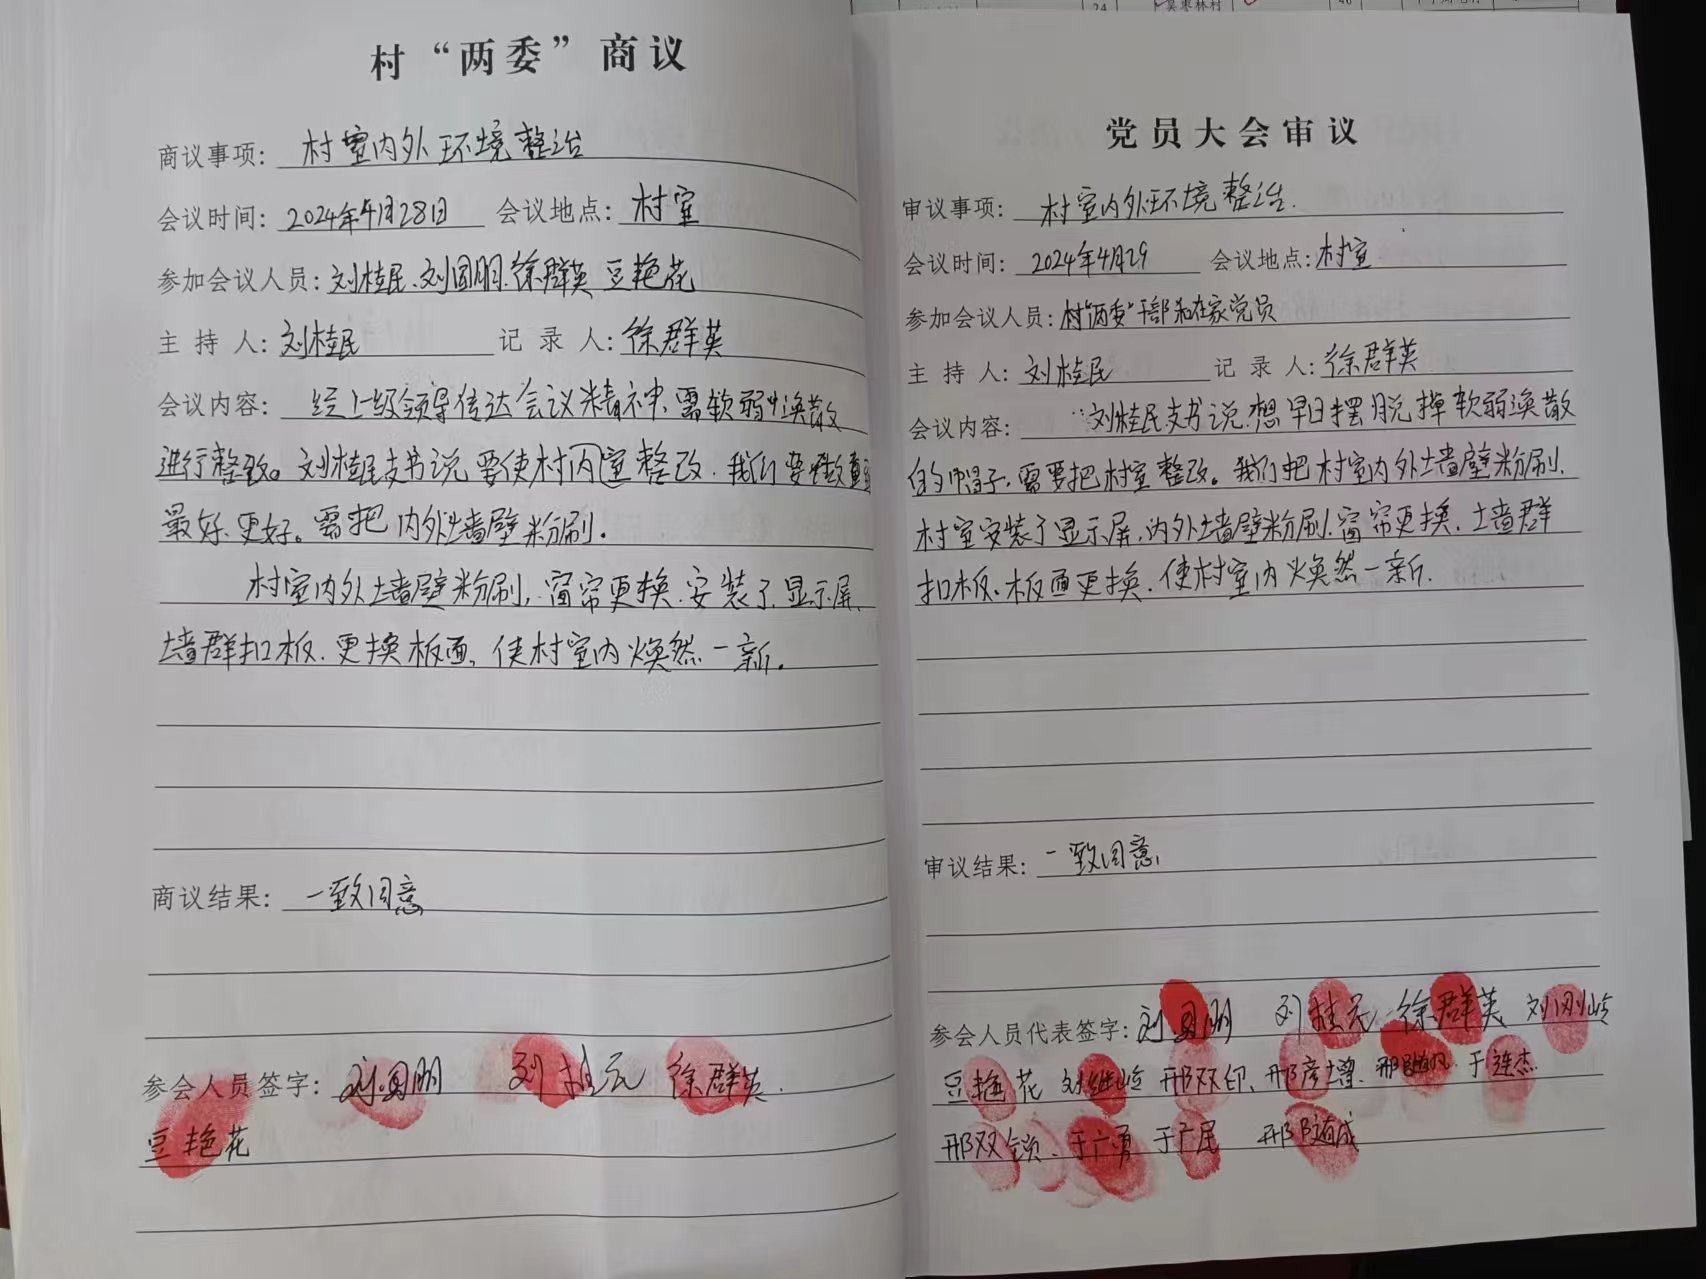 村“两委”商议
商议事项：村室内外环境整治
会议时间：2024年4月28日 会议地点：村室
参加会议人员：刘桂民、刘国朋、徐群英 豆艳花
主持人：刘桂民 记录人：徐群英
会议内容：经上级领导传达会议精神、需软弱涣散
进行整改。刘桂民支书说要使村内室整改，我们要做
最好、更好。需把内外墙壁粉刷。
村室内外墙壁粉刷，窗帘更换、安装了显示屏、
墙群扣板、更换板面，使村室内焕然一新。
商议结果：一致同意
参会人员签字：刘国朋 刘桂民 徐群英
豆艳花
党员大会审议
审议事项：村室内外环境整治.
会议时间：2024年4月29 会议地点：村室
参加会议人员：村“两委”干部和在家党员
主持人：刘桂民 记录人：徐群英
会议内容：刘桂民支书说.想早日摆脱掉软弱涣散
的帽子，需要把村室整改。我们把村室内外墙壁粉刷、
村室安装了显示屏，内外墙壁粉刷、窗帘更换、墙群
扣板、板面更换，使村室内焕然一新.
审议结果：一致同意
参会人员代表签字：刘国朋 刘桂民 徐群英 刘刚岭
豆艳花 刘继岭 邢双印、邢彦增、于连杰
邢双锁、于广勇 于广民 邢随成
24
吴枣林村